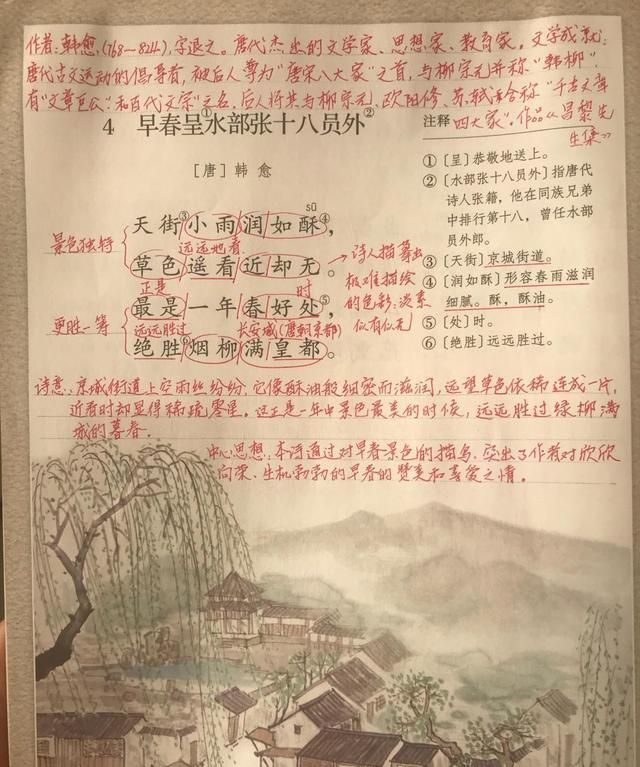 作者:韩愈,(768—824),字退之。唐代杰出的文学家、思想家、教育家。文学成就:
唐代古文运动的倡导者,被后人尊为"唐宋八大家"之首,与柳宗元并称"韩柳"
有"文章巨公"和百代文宗"之名。后人将其与柳宗元、欧阳修、苏轼合称"千古文章
四大家"。作品《昌黎先
生集》
4 早春呈①水部张十八员外②
[唐] 韩 愈
sū
天街③小雨润如酥④,
远远地看
草色遥看近却无。
景色独特
正是
时
最是一年春好处⑤,
远远胜过
长安城(唐朝京都)
绝胜⑥烟柳满皇都。
更胜一筹
→诗人描摹出
极难描绘
的色彩:淡素
似有似无
注释
①〔呈〕恭敬地送上。
②〔水部张十八员外〕指唐代
诗人张籍,他在同族兄弟
中排行第十八,曾任水部
员外郎。
③〔天街〕京城街道。
④〔润如酥〕形容春雨滋润
细腻。酥,酥油。
⑤〔处〕时。
⑥〔绝胜〕远远胜过。
诗意:京城街道上空雨丝纷纷,它像酥油般细密而滋润,远望草色依稀连成一片,
近看时却显得稀疏零星。这正是一年中景色最美的时候,远远胜过绿柳满
城的暮春。
中心思想:本诗通过对早春景色的描写,突出了作者对欣欣
向荣、生机勃勃的早春的赞美和喜爱之情。